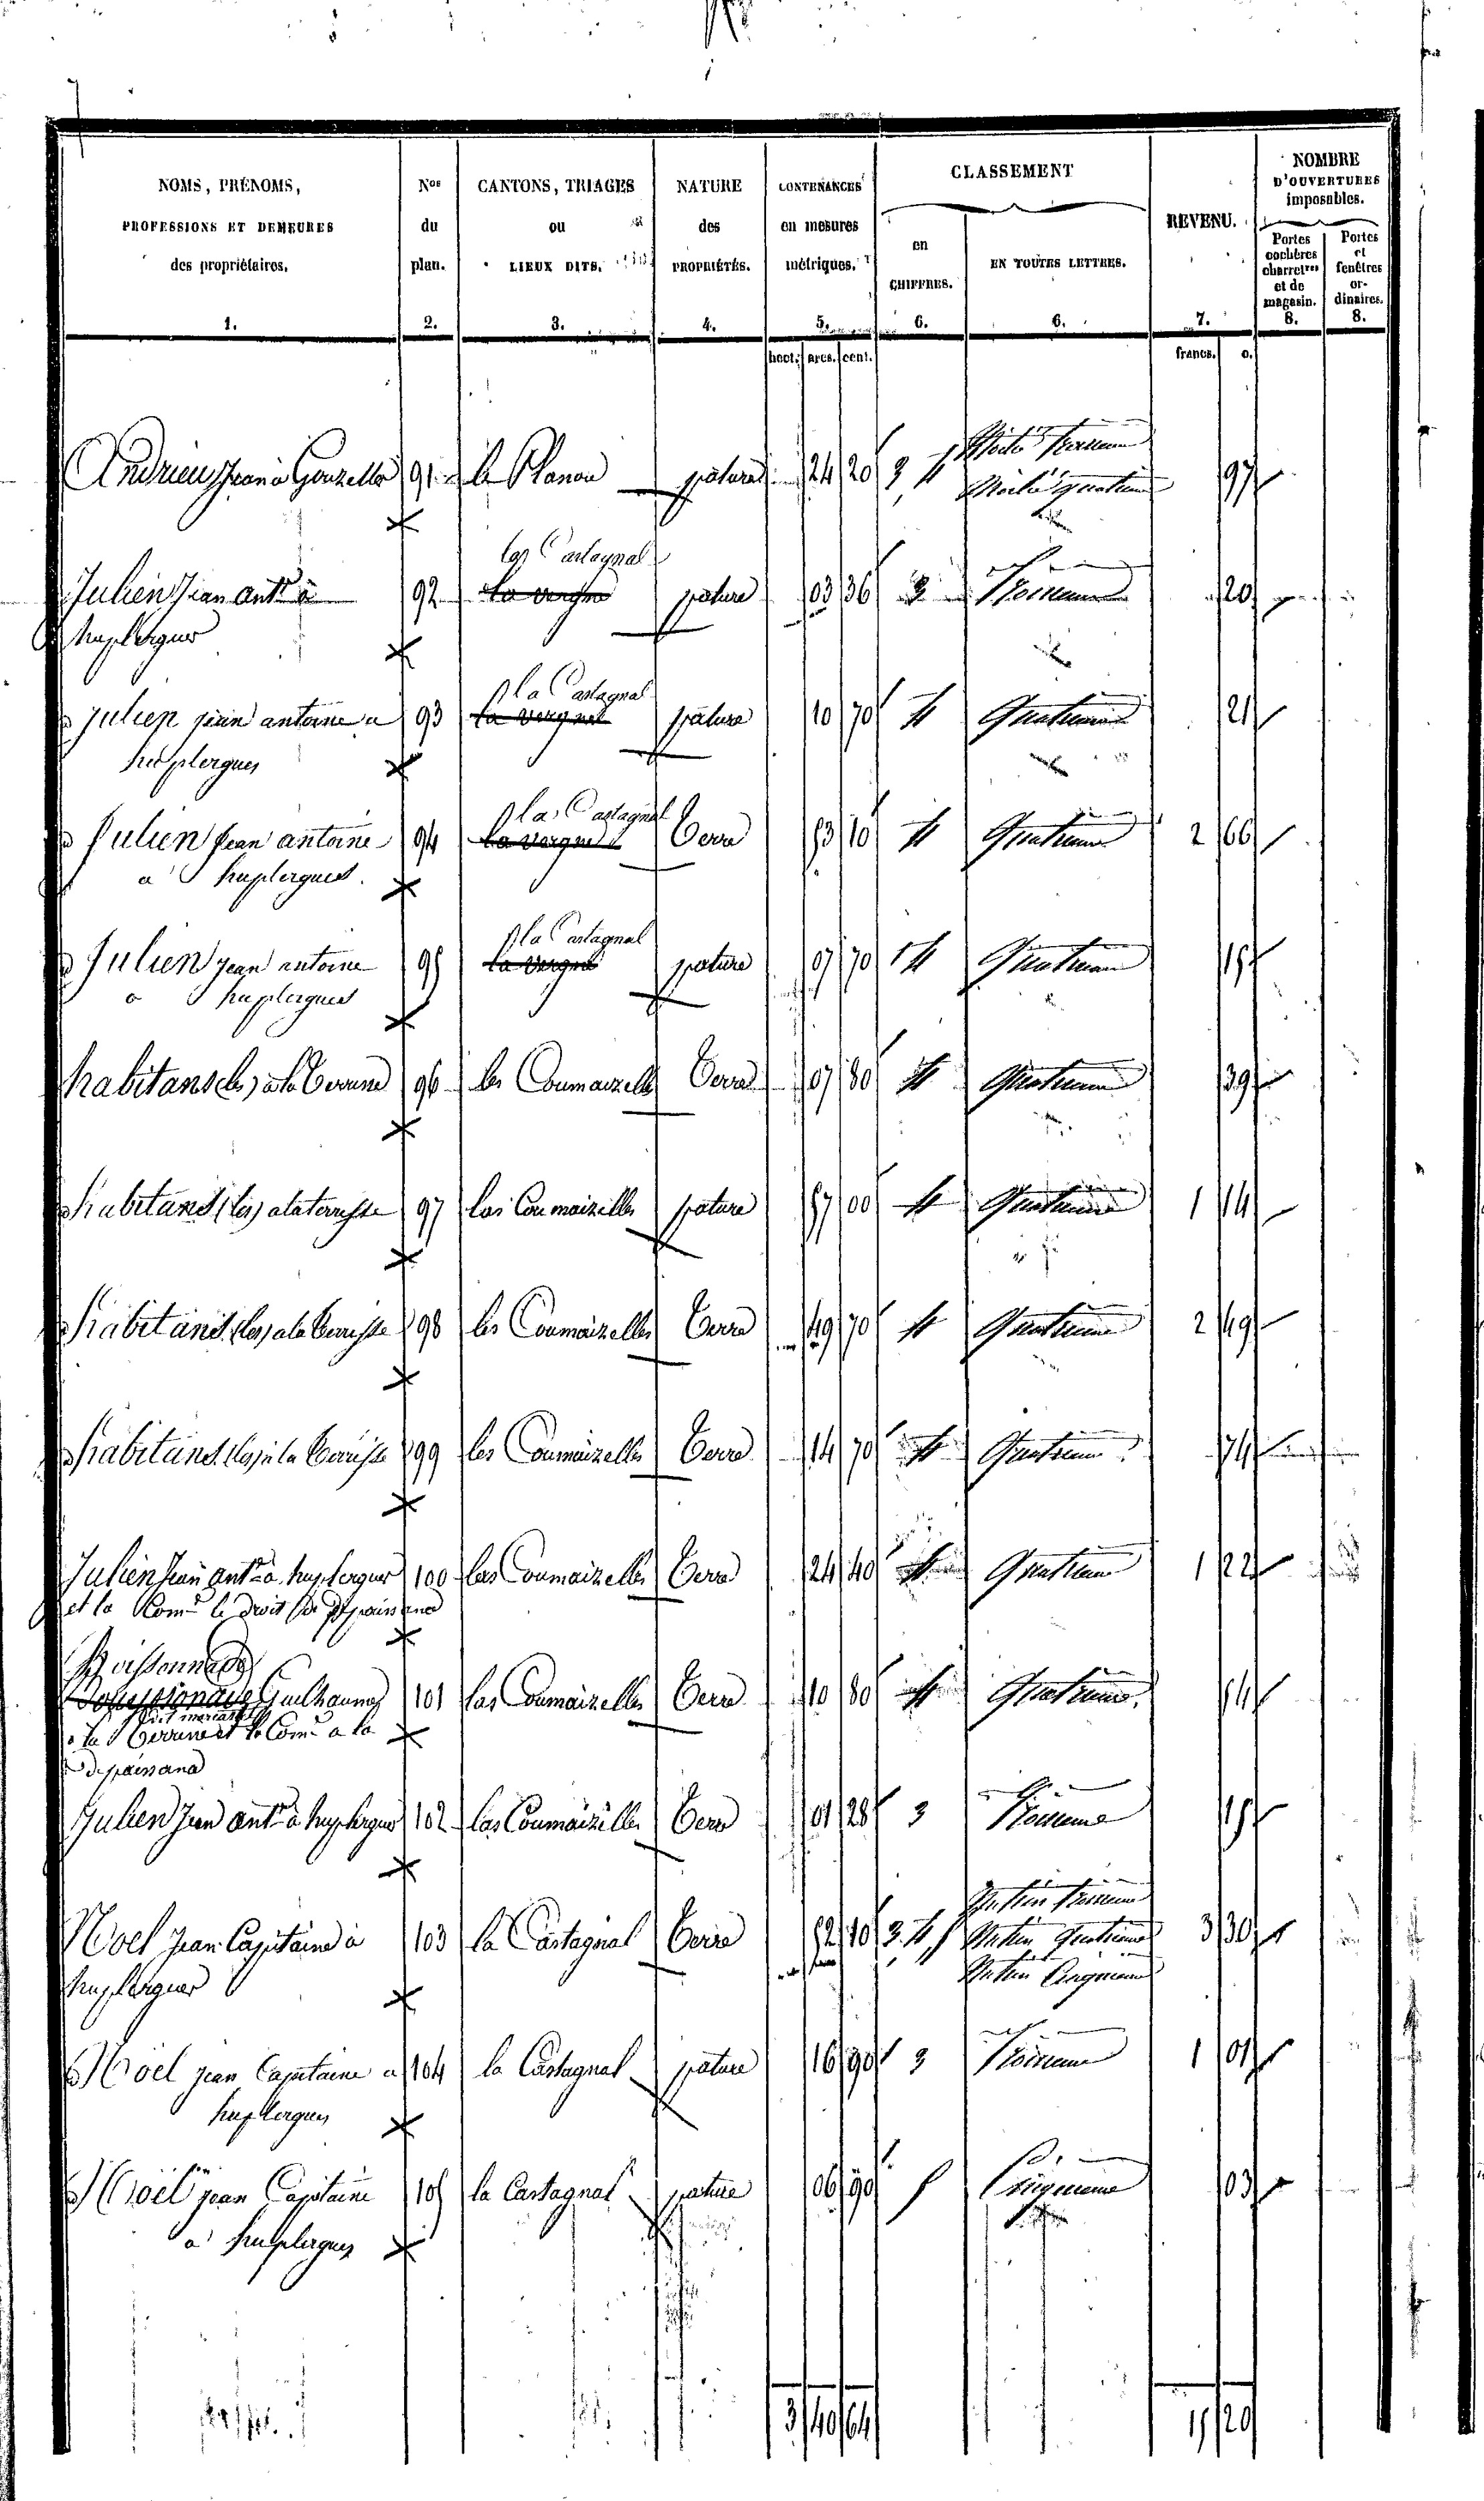 NOMS, PRÉNOMS, PROFESSIONS ET DEMEURES des propriétaires. 1.
Nos du plan. 2.
CANTONS, TRIAGES ou LIEUX DITS. 3.
NATURE des PROPRIÉTÉS. 4.
CONTENANCES en mesures métriques. 5.
CLASSEMENT
en CHIFFRES. 6.
EN TOUTES LETTRES. 6.
REVENU. 7.
NOMBRE D'OUVERTURES imposables.
Portes cochères charretres et de magasin. 8.
Portes et fenêtres ordinaires. 8.
hect. ares. cent. francs. c.
Moitié troisieme
Andrieu Jean à Gonzelle 91 le Planou pature 24 20 3, 4 Moitié quatrieme 97
las Castagnal
Julien Jean ant.e à 92 la vergne pature 03 36 3 Troisieme 20
huplergues
la Castagnal
Julien jean antoine a 93 la vergne pature 10 70 4 Quatrieme 21
huplergues
la Castagnal
Julien jean antoine 94 la vergne Terre 53 10 4 Quatrieme 2 66
a huplergues
la Castagnal
Julien jean antoine 95 la vergne pature 07 70 4 Quatrieme 15
a huplergues
habitans (les) à la 96 les Coumaizelles Terre 07 80 4 Quatrieme 39
habitans (les) a la terrisse 97 las Coumaizelles pature 57 00 4 Quatrieme 1 14
habitans (les) a la terrisse 98 les Coumaizelles Terre 49 70 4 Quatrieme 2 49
habitans (les) à la terrisse 99 les Coumaizelles Terre 14 70 4 Quatrieme 74
Julien Jean ant.e à huplergues 100 las Coumaizelles Terre 24 40 4 Quatrieme 1 22
et la Com.e le droit de depaissance
Boissonnade
Guilhaume 101 las Coumaizelles Terre 10 80 4 Quatrieme 54
à la et la Com.e a la
depaissance
Julien Jean ant.e à huplergues 102 las Coumaizelles Terre 01 28 3 Troisieme 15
troisieme
Noel Jean Capitaine à 103 la Castagnal Terre 52 10 3. 4, 5 quatrieme 3 30
huplergues cinquieme
Noël jean Capitaine a 104 la Castagnal pature 16 90 3 Troisieme 1 01
huplergues
Noël jean Capitaine 105 la Castagnal pature 06 90 5 Cinquieme 03
a huplergues
3 40 64 15 20